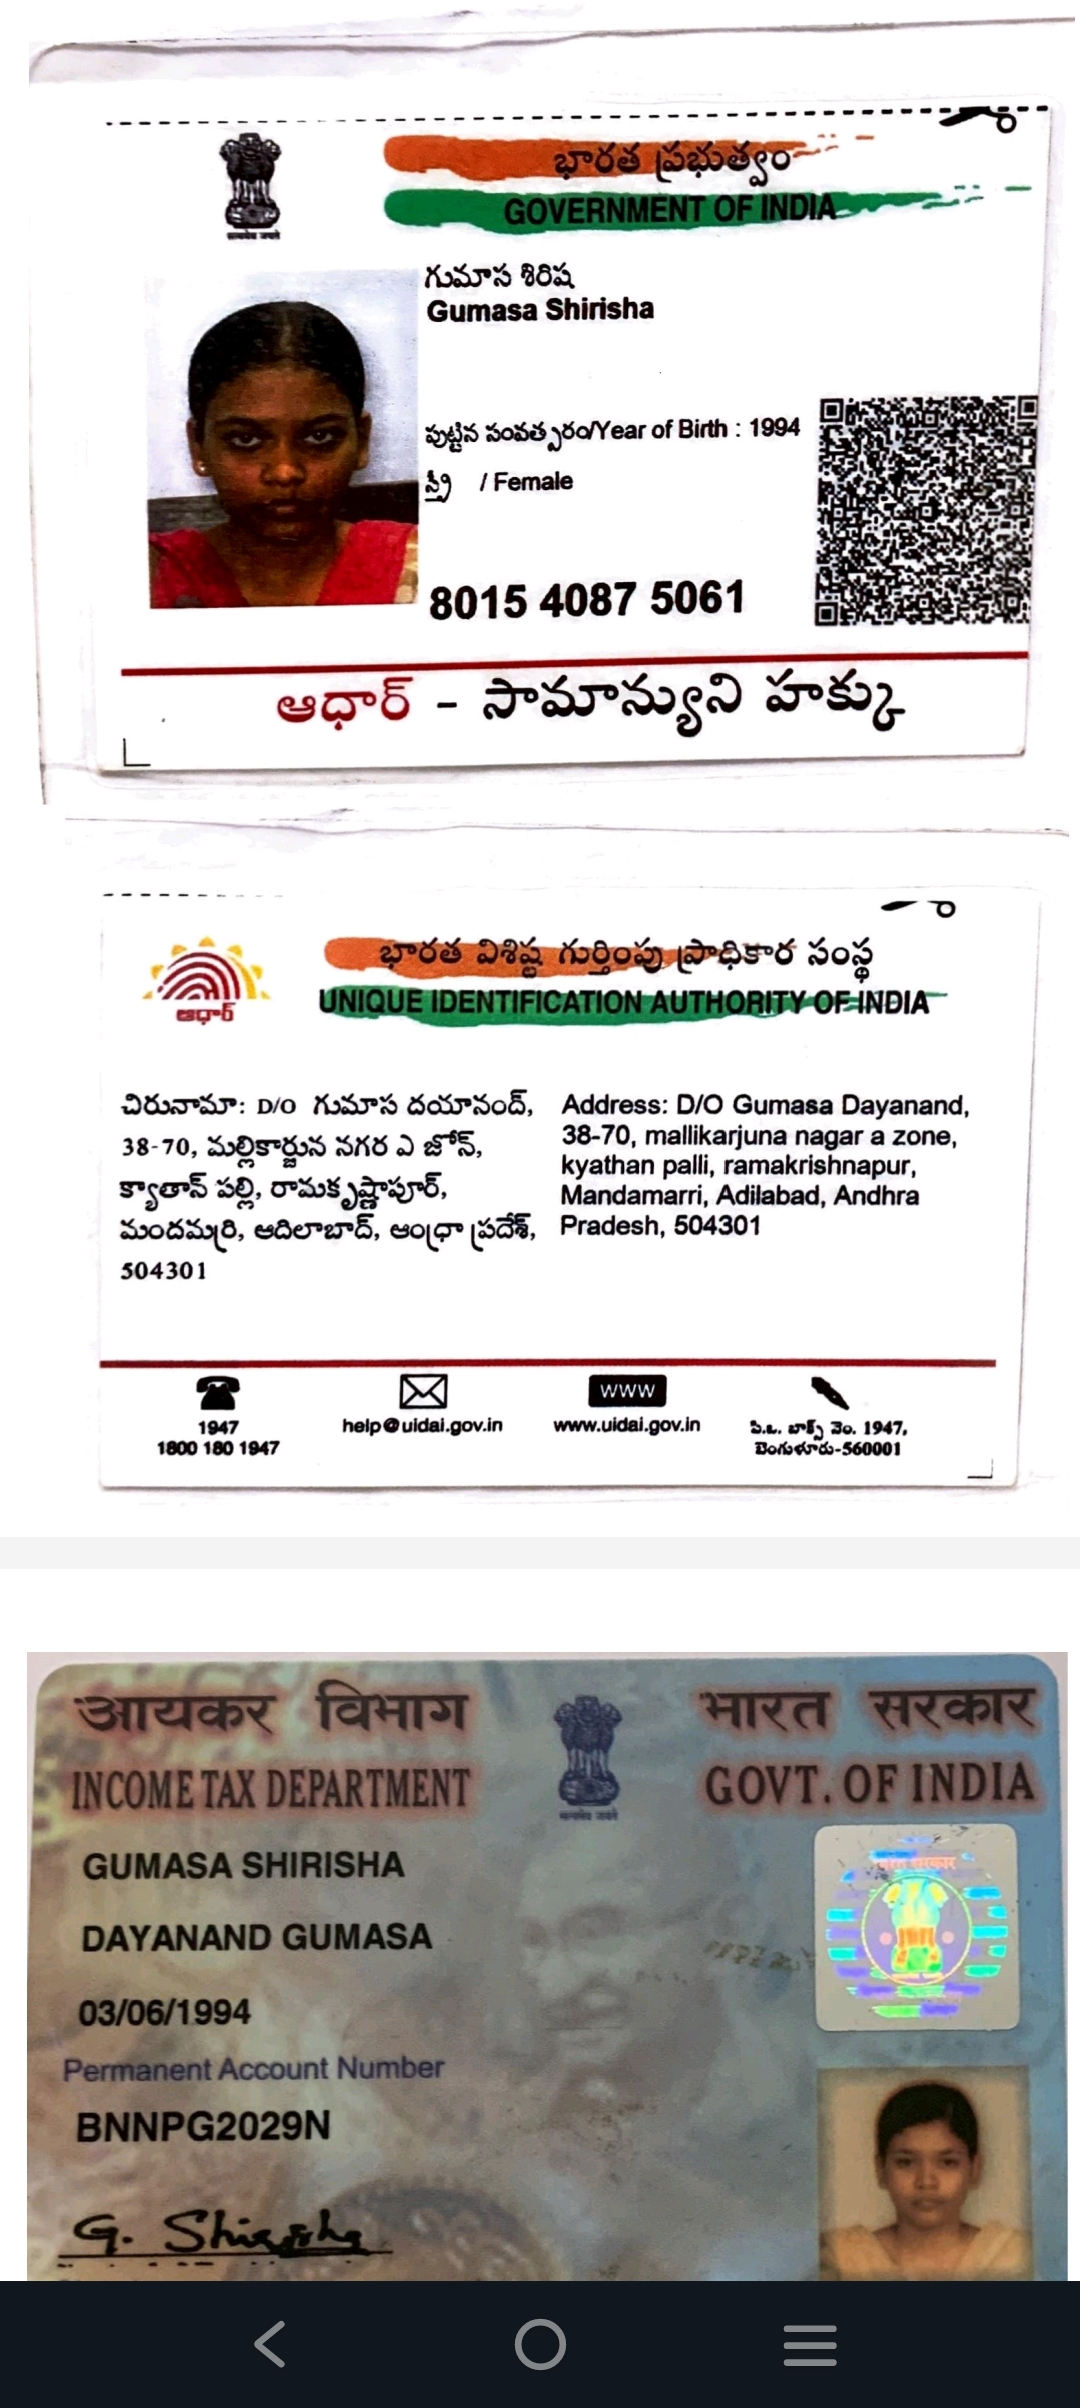 భారత ప్రభుత్వం
GOVERNMENT OF INDIA
सत्यमेव जयते
గుమాస శిరిష
Gumasa Shirisha
పుట్టిన సంవత్సరం/Year of Birth : 1994
స్త్రీ / Female
8015 4087 5061
ఆధార్ - సామాన్యుని హక్కు
భారత విశిష్ట గుర్తింపు ప్రాధికార సంస్థ
UNIQUE IDENTIFICATION AUTHORITY OF INDIA
ఆధార్
చిరునామా: D/O గుమాస దయానంద్,
38-70, మల్లికార్జున నగర ఎ జోన్,
క్యాతాన్ పల్లి, రామకృష్ణాపూర్,
మందమర్రి, ఆదిలాబాద్, ఆంధ్రా ప్రదేశ్,
504301
Address: D/O Gumasa Dayanand,
38-70, mallikarjuna nagar a zone,
kyathan palli, ramakrishnapur,
Mandamarri, Adilabad, Andhra
Pradesh, 504301
1947
1800 180 1947
help@uidai.gov.in
www
www.uidai.gov.in
పి.ఒ. బాక్స్ నెం. 1947,
బెంగుళూరు-560001
आयकर विभाग
भारत सरकार
INCOME TAX DEPARTMENT
GOVT. OF INDIA
सत्यमेव जयते
GUMASA SHIRISHA
DAYANAND GUMASA
03/06/1994
Permanent Account Number
BNNPG2029N
भारत सरकार
G. Shirisha